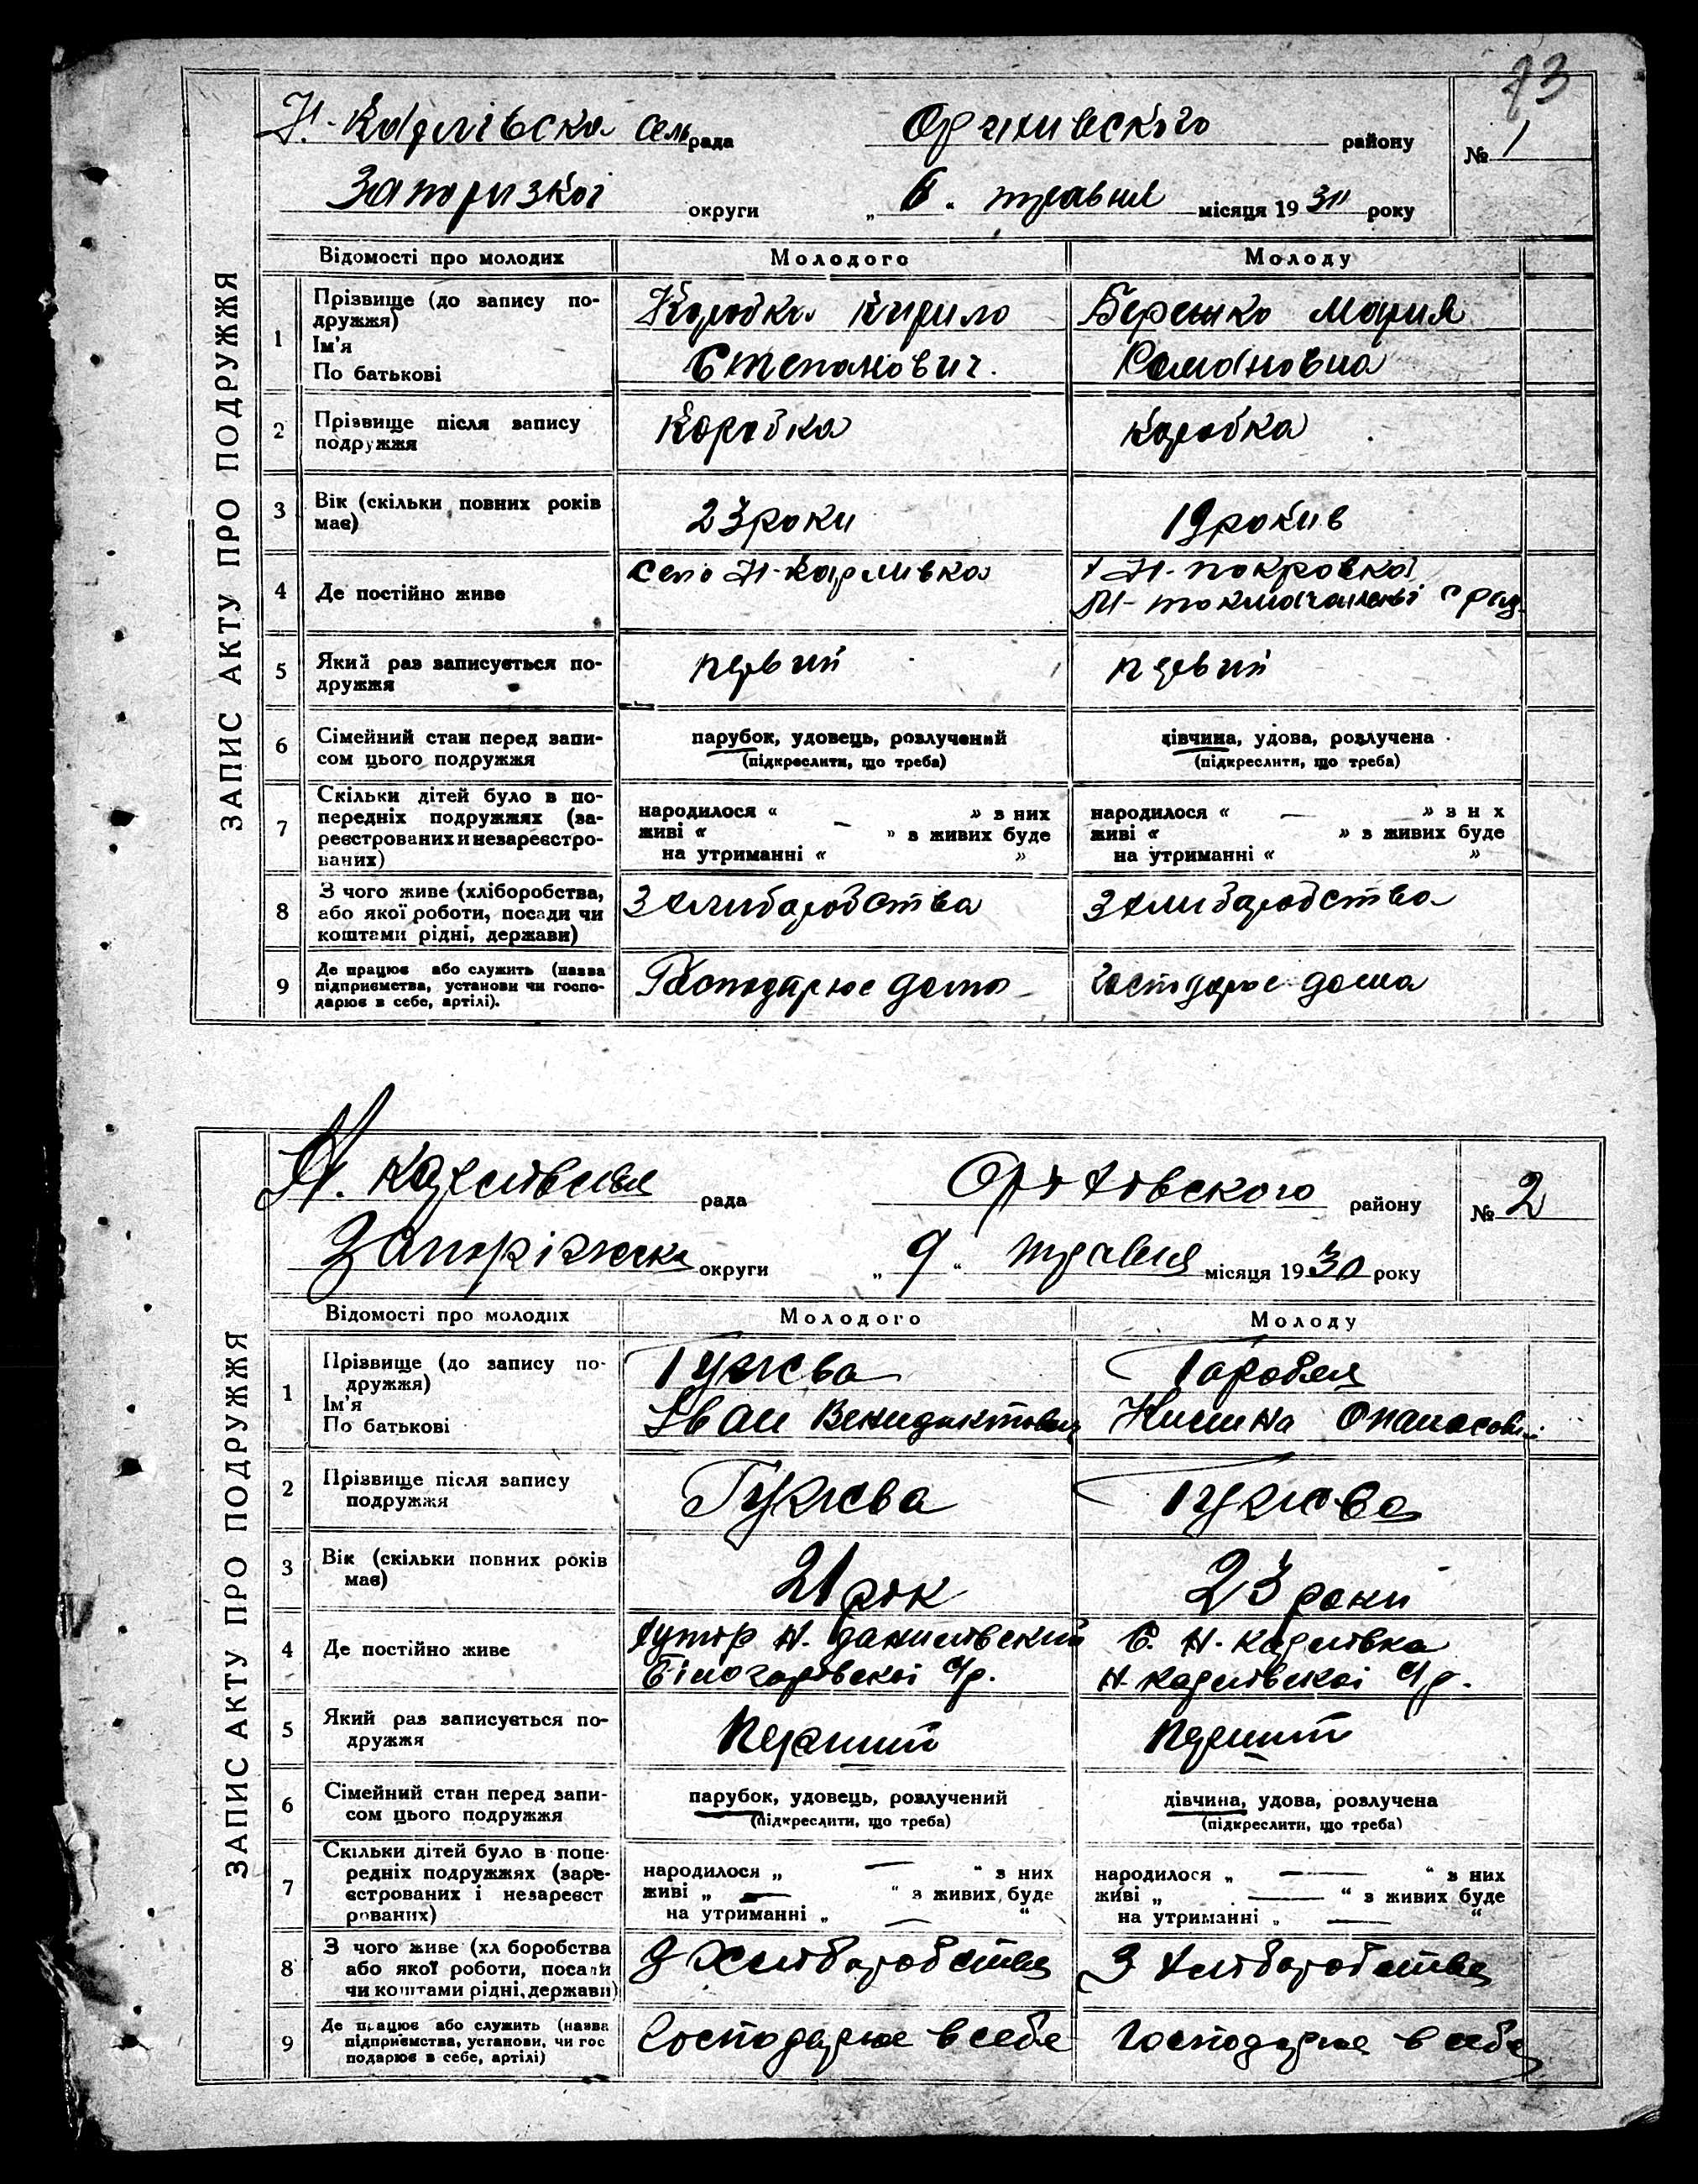 73
ЗАПИС АКТУ ПРО ПОДРУЖЖЯ
Н.-Карлівска сельрада Оріхивского району № 1
Запоризкоі округи „ 6 “ травня місяця 1930 року
Відомості про молодих Молодого Молоду
1 Прізвище (до запису подружжя) Ім'я По батькові
Коробка Кирило
Степанович.
Бережко Мария
Романовна
2 Прізвище після запису подружжя
Коробка
Коробка
3 Вік (скільки повних років має)
23 роки
19 рокив
4 Де постійно живе
село Н-Карливка
Н-покровкаі
М-токмачанскоі с рай
5 Який раз записується подружжя
первий
первий
6 Сімейний стан перед записом цього подружжя
парубок, удовець, розлучений
(підкреслити, що треба)
дівчина, удова, розлучена
(підкреслити, що треба)
7 Скільки дітей було в попередніх подружжях (зареєстрованих и незареєстрованих)
народилося « — » з них
живі « » з живих буде
на утриманні « »
народилося « — » з н х
живі « » з живих буде
на утриманні « »
8 З чого живе (хліборобства, або якої роботи, посади чи коштами рідні, держави)
З хлибаробства
З хлибаробства
9 Де працює або служить (назва підприємства, установи чи господарює в себе, артілі).
Господарює дома
господарює дома
ЗАПИС АКТУ ПРО ПОДРУЖЖЯ
Н. Карлівська рада Оріхівского району № 2
Запоріжска округи „ 9 “ травня місяця 1930 року
Відомості про молодих Молодого Молоду
1 Прізвище (до запису подружжя) Ім'я По батькові
Гужева
Іван Венидиктович
Горобея
Опанасовна
2 Прізвище після запису подружжя
Гужева
Гужева
3 Вік (скільки повних років має)
21 рік
23 роки
4 Де постійно живе
хутір Н. Данилівский
Білогорівскоі с/р.
С. Н-Карлівка
Н-Карлівскоі с/р.
5 Який раз записується подружжя
Перший
Перший
6 Сімейний стан перед записом цього подружжя
парубок, удовець, розлучений
(підкреслити, що треба)
дівчина, удова, розлучена
(підкреслити, що треба)
7 Скільки дітей було в попередніх подружжях (зареєстрованих і незареєст рованих)
народилося „ — “ з них
живі „ — “ з живих буде
на утриманні „ — “
народилося „ — “ з них
живі „ — “ з живих буде
на утриманні „ — “
8 З чого живе (хл боробства або якої роботи, посади чи коштами рідні, держави)
З Хліборобства
З Хліборобства
9 Де працює або служить (назва підприємства, установи, чи гос подарює в себе, артілі)
Господарює в себе
Господарює в себе